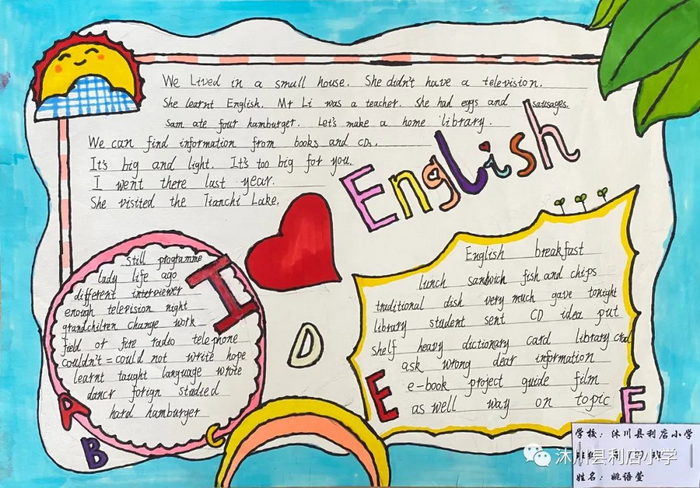 We Lived in a small house. She didn't have a television.
She learnt English. Mr Li was a teacher. She had eggs and sausages.
Sam ate four hamburger. Let's make a home library.
We can find information from books and CDs.
It's big and light. It's too big for you.
I went there last year.
She visited the Tianchi Lake.
I
English
still programme
lady life ago
different interviewer
enough television night
grandchilren change work
field or fire radio telephone
couldn't = could not write hope
learnt taught language wrote
dancr forign studied
hard hamburger
English breakfust
lunch sandwich fish and chips
traditional dish very much gave tonight
library student sent CD idea put
shelf heavy dictionary card library card
ask wrong dear information
e-book project guide film
as well way on topic
A
B
C
D
E
F
学校：沐川县利店小学
姓名：姚语萱
沐川县利店小学